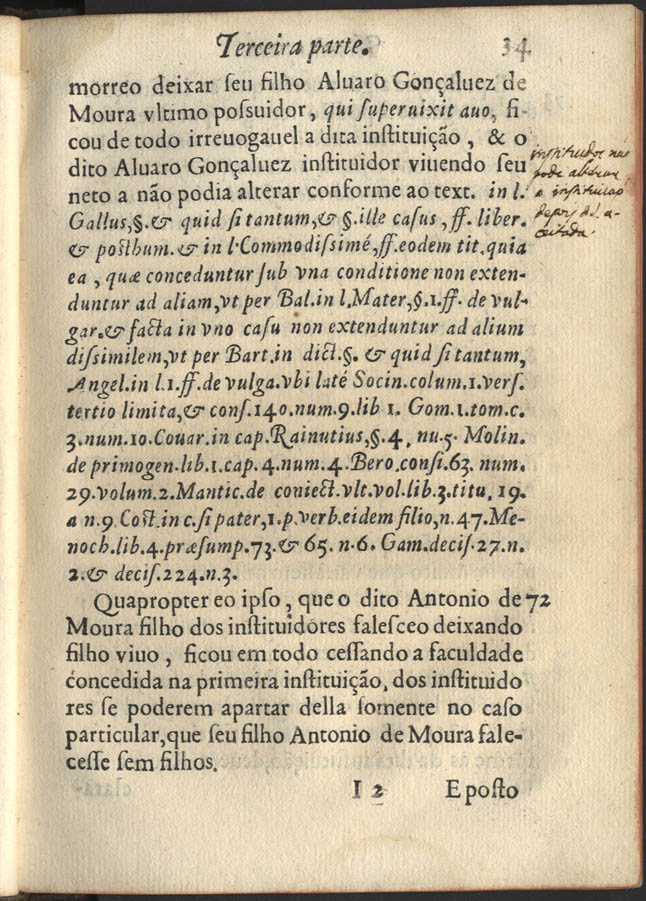 Terceira parte. 34
morreo deixar ſeu filho Aluaro Gonçaluez de
Moura vltimo poſsuidor, qui ſuperuixit auo, fi-
cou de todo irreuogauel a dita inſtituição, & o
dito Aluaro Gonçaluez inſtituidor viuendo ſeu
neto a não podia alterar conforme ao text. in l.
Gallus,§.& quid ſi tantum,& §.ille caſus, ff. liber.
& poſthum.& in l.Commodiſsimé,ff.eodem tit.quia
ea, quæ conceduntur ſub vna conditione non exten-
duntur ad aliam,vt per Bal.in l.Mater,§.1.ff. de vul-
gar.& facta in vno caſu non extenduntur ad alium
diſsimilem,vt per Bart.in dict.§. & quid ſi tantum,
Angel.in l.1.ff.de vulga.vbi laté Socin.colum.1.verſ.
tertio limita,& conſ.140.num.9.lib 1. Gom.1.tom.c.
3.num.10.Couar.in cap.Rainutius,§.4, nu.5. Molin.
de primogen.lib.1.cap.4.num.4.Bero.conſi.63. num.
29.volum.2.Mantic.de coniect.vlt.vol.lib.3.titu. 19.
a n.9.Coſt.in c.ſi pater,1.p.verb.eidem filio,n.47.Me-
noch.lib.4.præſump.73.& 65. n.6. Gam.deciſ.27.n.
2.& deciſ.224.n.3.
Quapropter eo ipſo, que o dito Antonio de 72
Moura filho dos inſtituidóres faleſceo deixando
filho viuo, ficou em todo ceſſando a faculdade
concedida na primeira inſtituição, dos inſtituido
res ſe poderem apartar della ſomente no caſo
particular,que ſeu filho Antonio de Moura fale-
ceſſe ſem filhos.
I 2 E poſto
inſtituidor não
pode alterar
a inſtituicao
depois de a-
ceitada.